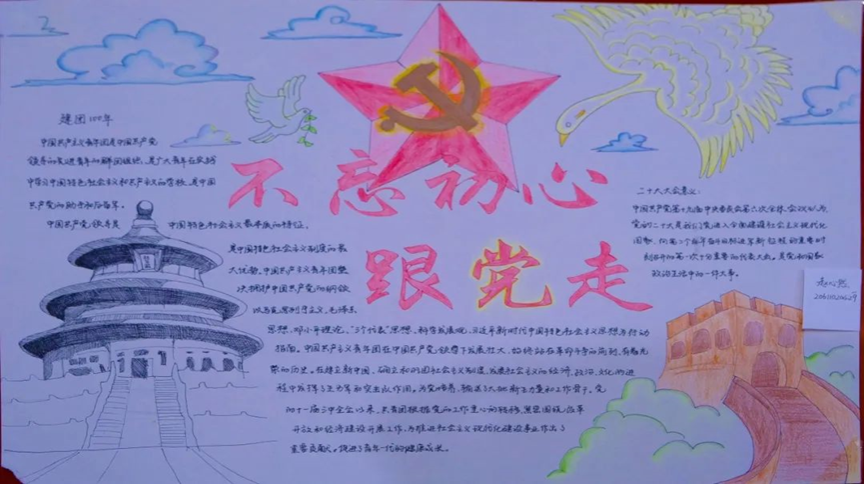 不忘初心
跟党走
建团100年
中国共产主义青年团是中国共产党
领导的先进青年的群团组织,是广大青年在实践
中学习中国特色社会主义和共产主义的学校,是中国
共产党的助手和后备军。
中国共产党领导是 中国特色社会主义最本质的特征,
是中国特色社会主义制度的最
大优势。中国共产主义青年团坚
决拥护中国共产党的纲领
以马克思列宁主义、毛泽东
思想,邓小平理论,“3个代表”思想,科学发展观,习近平新时代中国特色社会主义思想为行动
指南。中国共产主义青年团在中国共产党领导下发展壮大,始终站在革命斗争的前列,有着光
荣的历史。在建立新中国,确立和巩固社会主义制度,发展社会主义的经济、政治、文化的进
程中发挥了生力军和突击队作用,为党培养、输送了大批新生力量和工作骨干。党
的十一届三中全会以来,共青团根据党的工作重心的转移,紧紧围绕改革
开放和经济建设开展工作,为推进社会主义现代化建设事业作出了
重要贡献,促进了青年一代的健康成长。
二十大大会意义:
中国共产党第十九届中央委员会第六次全体会议认为,
党的二十大是我们党进入全面建设社会主义现代化
国家,向第二个百年奋斗目标进军新征程的重要时
刻召开的第一次十分重要的代表大会。是党和国家
政治生活中的一件大事。